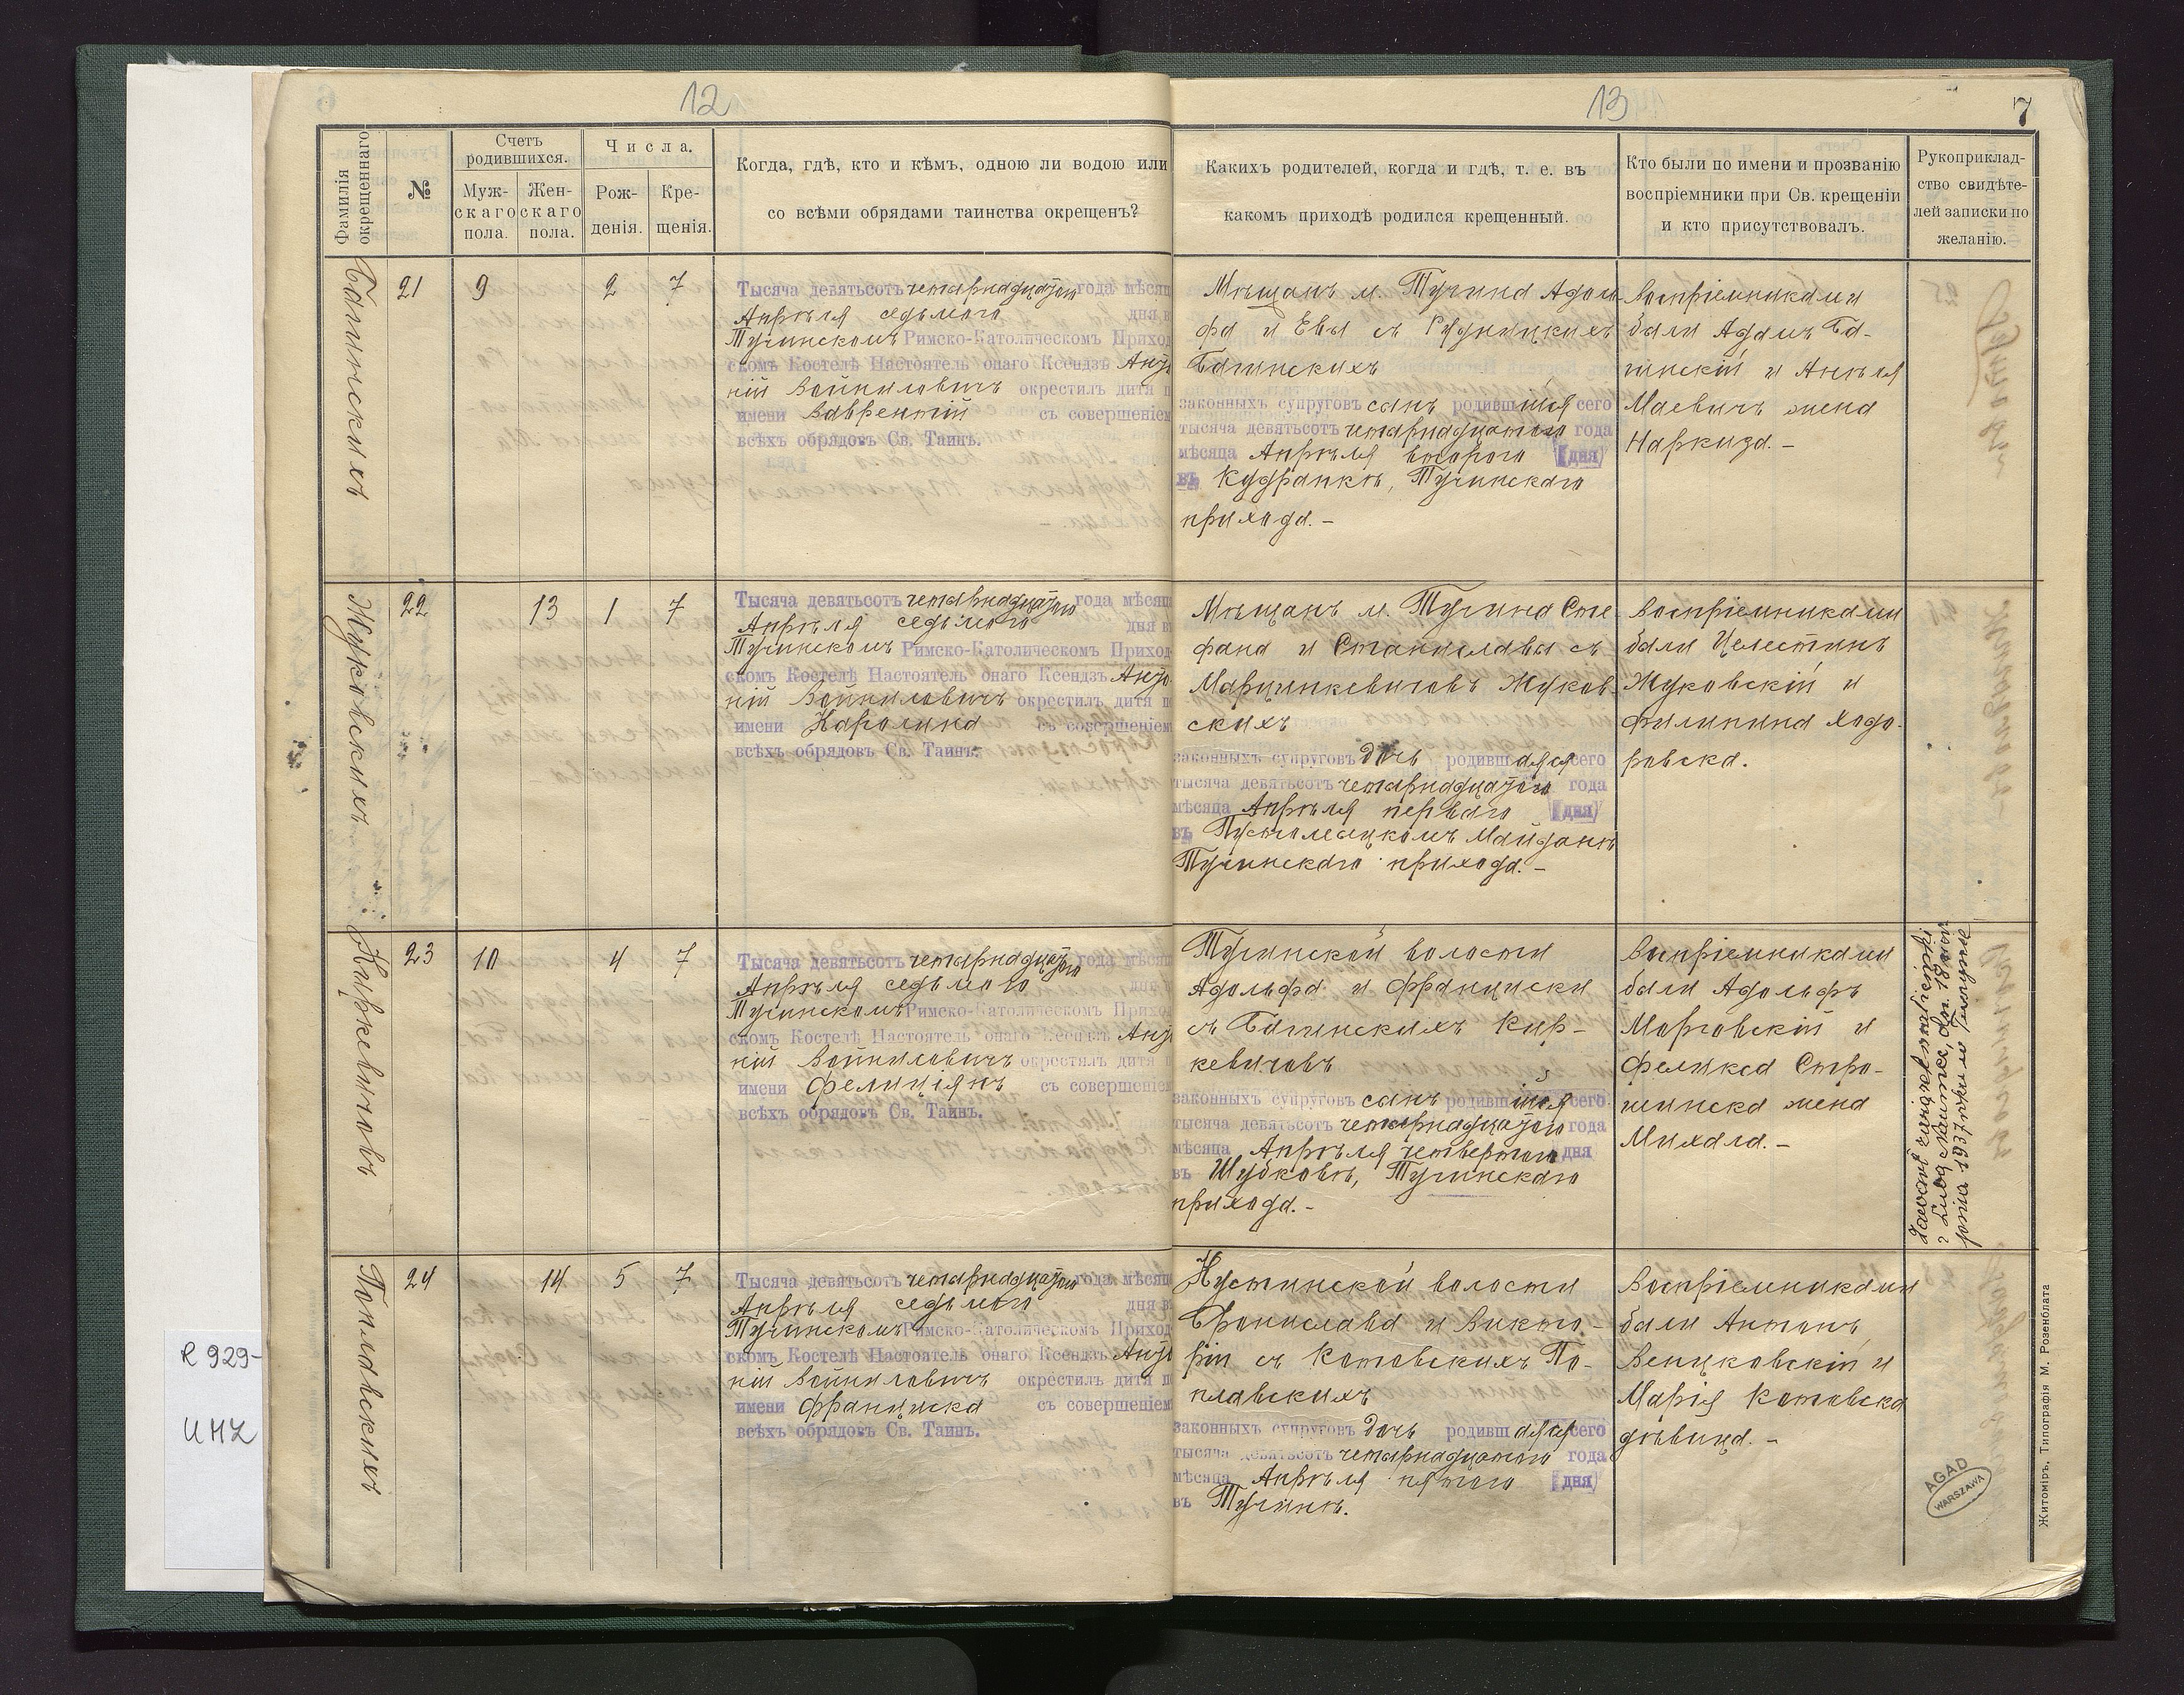 12
13
7
Фамилія окрещеннаго.
№
Счетъ родившихся.
Муж-
скаго
пола.
Жен-
скаго
пола.
Числа.
Рож-
денія.
Кре-
щенія.
Когда, гдѣ, кто и кѣмъ, одною ли водою или
со всѣми обрядами таинства окрещенъ?
Каких​ъ родителей, когда и гдѣ, т. е. въ
какомъ приходѣ родился крещенный.
Кто были по имени и прозванію
воспріемники при Св. крещеніи
и кто присутствовалъ.
Рукоприклад-
ство свидѣте-
лей записки по
желанію.
Багинскихъ
21
9
2
7
Тысяча девятьсотъ четырнадцатого года мѣсяц
Апрѣля седьмого дня в
Тучинскомъ Римско-Католическомъ Приход
скомъ Костелѣ Настоятель онаго Ксендзъ Анто
ній Войниловичъ окрестилъ дитя п
имени Лаврентій съ совершеніем
всѣхъ обрядовъ Св. Таинъ.
Мѣщанъ м. Тучина Адоль
фа и Евы съ Рудницкихъ
Багинскихъ
законныхъ супруговъ сынъ родившійся сего
тысяча девятьсотъ четырнадцатого года
мѣсяца Апрѣля второго (дня)
въ Кудранкѣ, Тучинскаго
прихода. -
Воспріемниками
были Адамъ Ба-
гинскій и Анеля
Маевичъ жена
Наркиза. -
Жуковскихъ
22
13
1
7
Тысяча девятьсотъ четырнадцатого года мѣсяц
Апрѣля седьмого дня в
Тучинскомъ Римско-Католическомъ Приход
скомъ Костелѣ Настоятель онаго Ксендзъ Анто
ній Войниловичъ окрестилъ дитя п
имени Каролина съ совершеніем
всѣхъ обрядовъ Св. Таинъ.
Мѣщанъ м. Тучина Сте
фана и Станиславы съ
Марцинкевичовъ Жуков
скихъ
законныхъ супруговъ дочь родившаяся сего
тысяча девятьсотъ четырнадцатого года
мѣсяца Апрѣля перваго (дня)
въ Пустомыцкомъ Майданѣ
Тучинскаго прихода. -
Воспріемниками
были Целестинъ
Жуковскій и
Филипина Ходо-
ровска.
Киркевичовъ
23
10
4
7
Тысяча девятьсотъ четырнадцатого года мѣсяц
Апрѣля седьмого дня в
Тучинскомъ Римско-Католическомъ Приход
скомъ Костелѣ Настоятель онаго Ксендзъ Анто
ній Войниловичъ окрестилъ дитя п
имени Фелиціянъ съ совершеніем
всѣхъ обрядовъ Св. Таинъ.
Тучинской волости
Адольфа и Франциски
съ Багинскихъ Кир-
кевичовъ
законныхъ супруговъ сынъ родившійся сего
тысяча девятьсотъ четырнадцатого года
мѣсяца Апрѣля четвертого дня
въ Шубковѣ, Тучинскаго
прихода. -
Воспріемниками
были Адольфъ
Марговскій и
Феликса Стро-
жинска жена
Михала. -
Zawarł związek małżeński
z Lidą
1937 roku w Tuczynie
Поплавскихъ
24
14
5
7
Тысяча девятьсотъ четырнадцатого года мѣсяц
Апрѣля седьмого дня в
Тучинскомъ Римско-Католическомъ Приход
скомъ Костелѣ Настоятель онаго Ксендзъ Анто
ній Войниловичъ окрестилъ дитя п
имени Франциска съ совершеніем
всѣхъ обрядовъ Св. Таинъ.
Кустинской волости
Бронислава и Викто-
ріи съ Котовскихъ По-
плавскихъ
законныхъ супруговъ дочь родившаяся сего
тысяча девятьсотъ четырнадцатого года
мѣсяца Апрѣля пятого (дня)
въ Тучинѣ.
Воспріемниками
были Антонъ
Венцковскій и
Марія Котовска
дѣвица. -
AGAD
WARSZAWA
Житоміръ, Типографія М. Розенблата
R 929-
UMZ